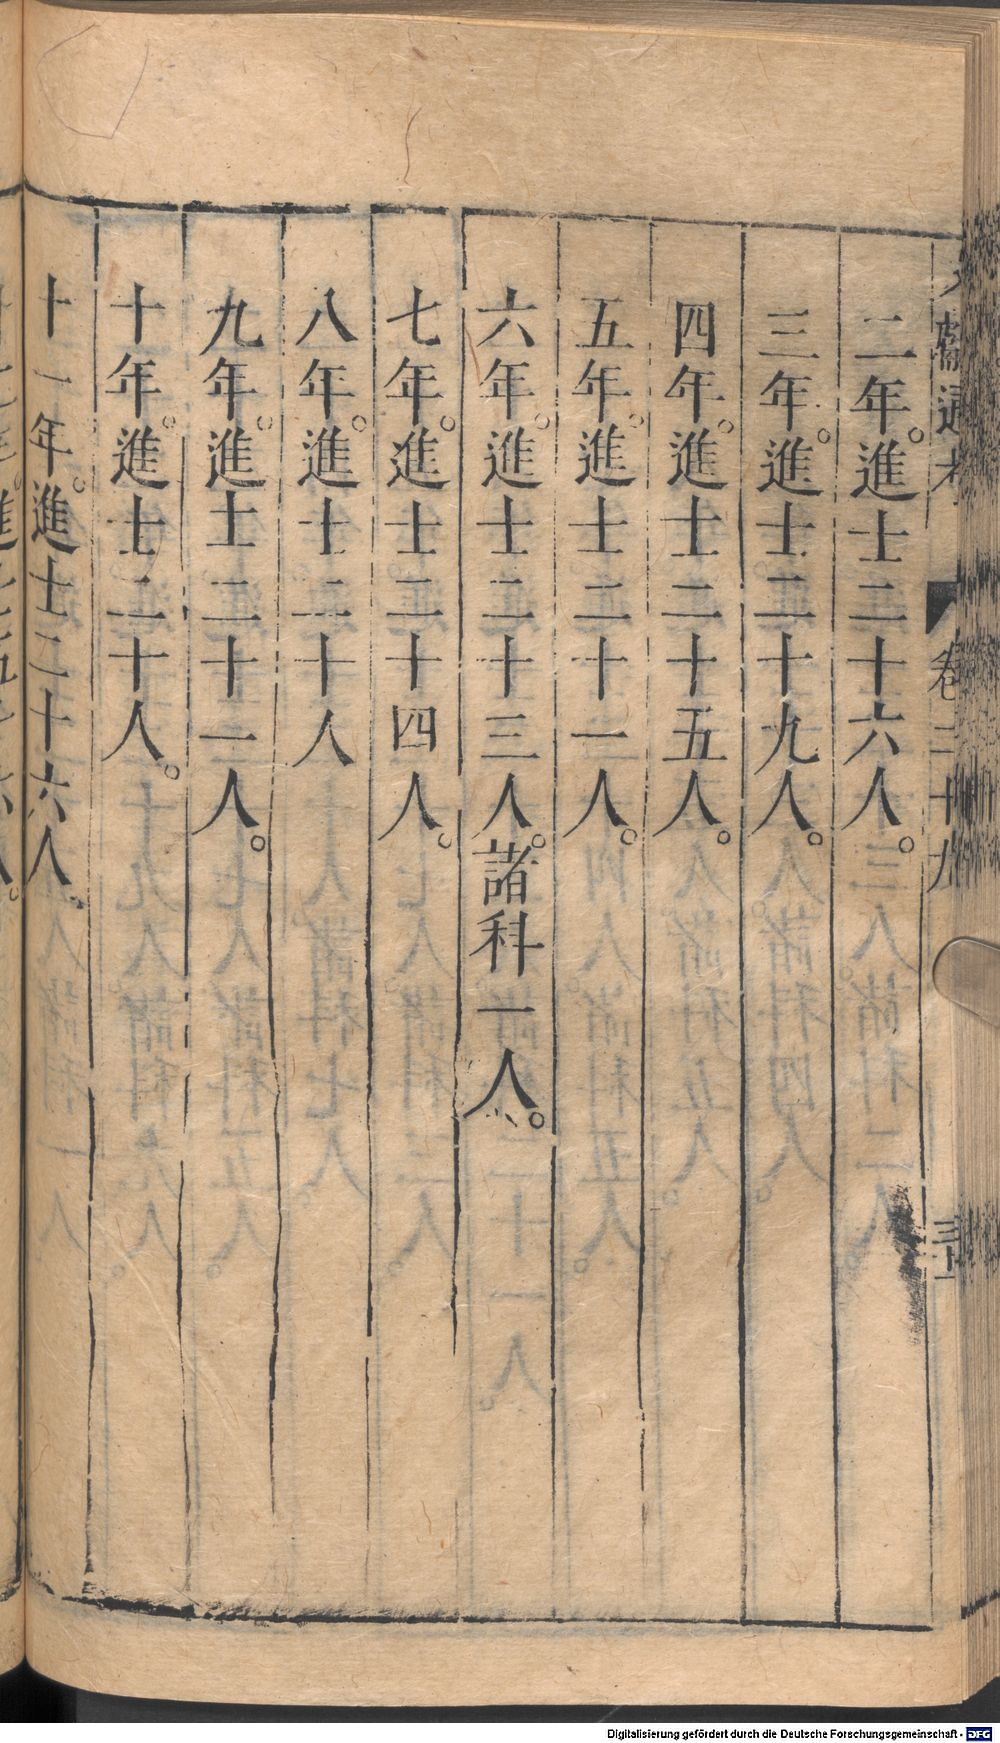 二年。進士二十六人。
三年。進士二十九人。
四年。進士二十五人。
五年。進士二十一人。
六年。進士二十三人。諸科一人。
七年。進士二十四人。
八年。進士二十人
九年。進士二十一人。
十年。進士二十人。
十一年。進士二十六人。
卷二十九
Digitalisierung gefördert durch die Deutsche Forschungsgemeinschaft - DFG